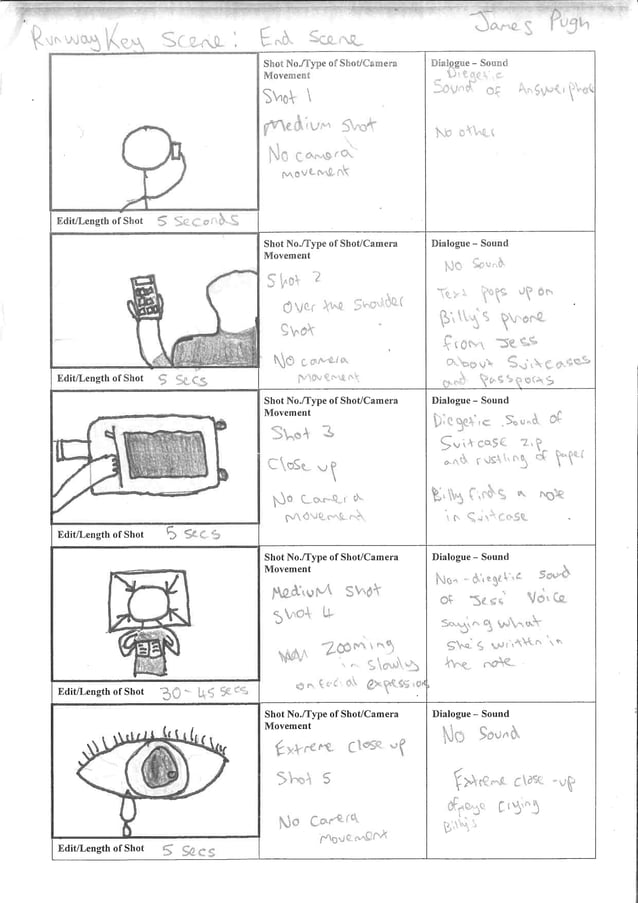 Runway Key Scene: End Scene
James Pugh
Shot No./Type of Shot/Camera
Movement
Shot 1
Medium Shot
No camera
movement
Dialogue – Sound
Diegetic
Sound of Answerphone
No other
Edit/Length of Shot 5 Seconds
Shot No./Type of Shot/Camera
Movement
Shot 2
Over the Shoulder
Shot
No camera
Movement
Dialogue – Sound
No Sound
Text pops up on
Billy's phone
from Jess
about Suitcases
and passports
Edit/Length of Shot 5 secs
Shot No./Type of Shot/Camera
Movement
Shot 3
Close up
No Camera
Movement
Dialogue – Sound
Diegetic Sound of
Suitcase zip
and rustling of paper
Billy finds a note
in Suitcase
Edit/Length of Shot 5 secs
Shot No./Type of Shot/Camera
Movement
Medium Shot
Shot 4
Zooming
in Slowly
on facial expression
Dialogue – Sound
Non-diegetic Sound
of Jess' Voice
saying what
she's written in
the note
Edit/Length of Shot 30-45 secs
Shot No./Type of Shot/Camera
Movement
Extreme Close up
Shot 5
No Camera
Movement
Dialogue – Sound
No Sound
Extreme close-up
of eye crying
Billy's
Edit/Length of Shot 5 secs